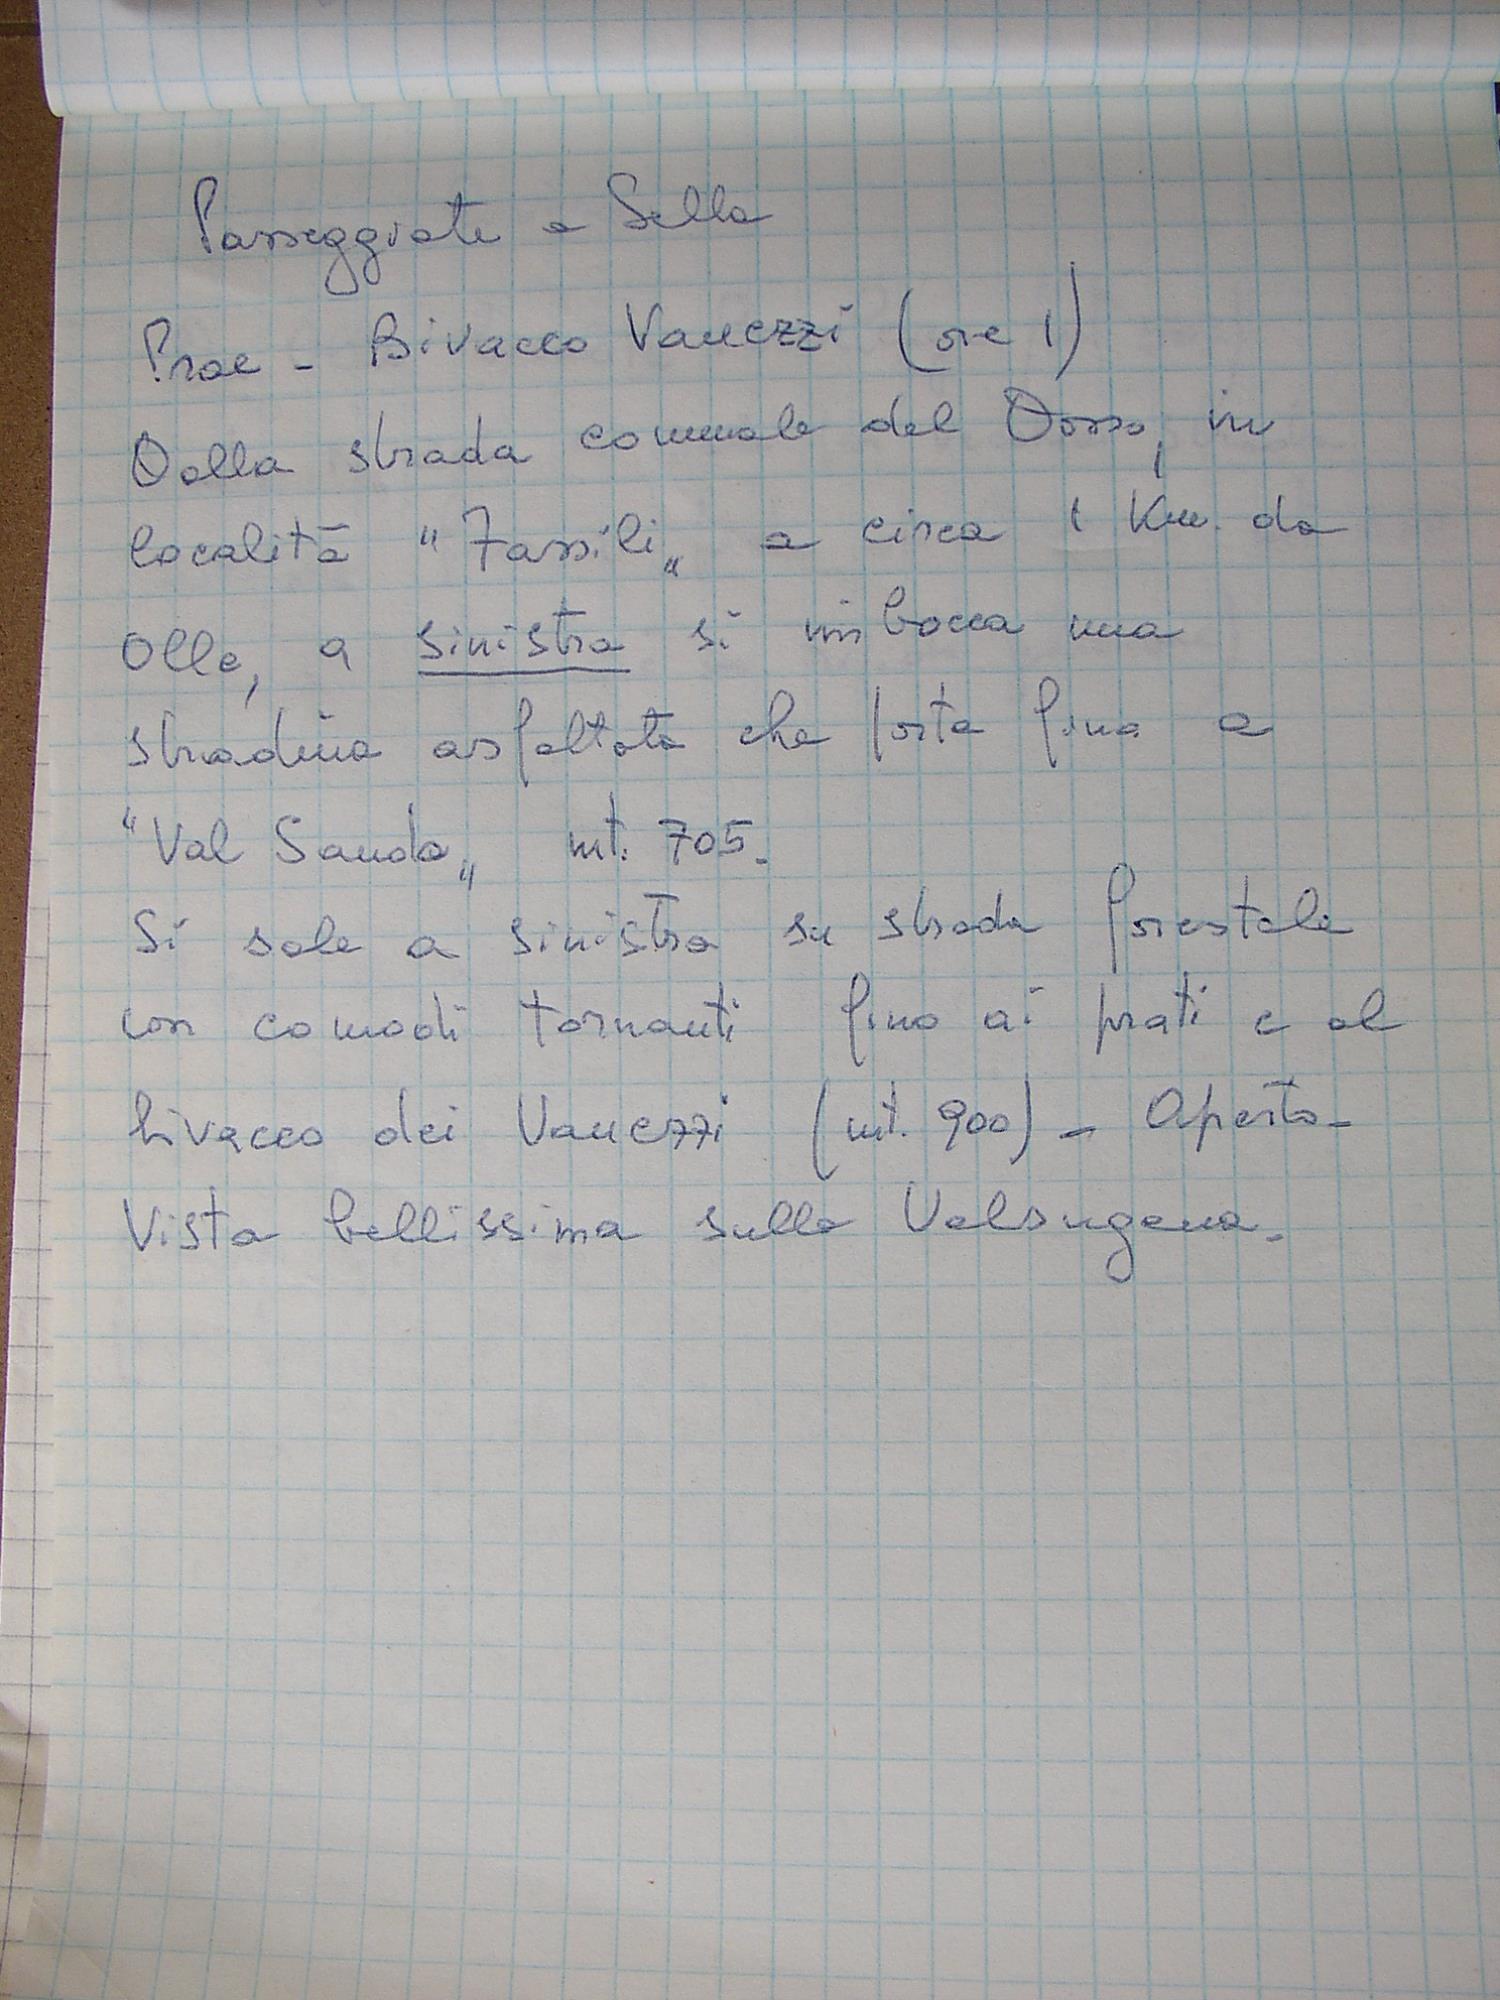 Passeggiate a Sella
Prae - Bivacco Vanezzi (ore 1)
Dalla strada comunale del Dosso, in
località "Fassili" a circa 1 Km. da
Olle, a sinistra si imbocca una
stradina asfaltata che porta fino a
"Val Sanda" mt. 705.
Si sale a sinistra su strada forestale
con comodi tornanti fino ai prati e al
bivacco dei Vanezzi (mt. 900) - Aperto -
Vista bellissima sulla Valsugana.